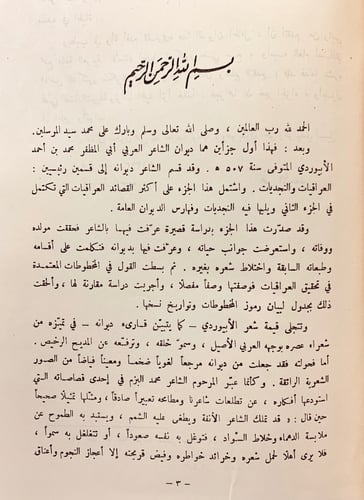 بسم الله الرحمن الرحيم
الحمد لله رب العالمين ، وصلى الله تعالى وسلم وبارك على محمد سيد المرسلين .
وبعد : فهذا أول جزأين هما ديوان الشاعر العربي أبي المظفر محمد بن أحمد
الأبيوردي المتوفى سنة ٥٠٧ هـ . وقد قسم الشاعر ديوانه إلى قسمين رئيسيين :
العراقيات والنجديات . واشتمل هذا الجزء على أكثر القصائد العراقيات التي تكتمل
في الجزء الثاني ويليها فيه النجديات وفهارس الديوان العامة .
وقد صدّرت هذا الجزء بدراسة قصيرة عرّفت فيها بالشاعر فحققت مولده
ووفاته ، واستعرضت جوانب حياته ، وعرّفت فيها بديوانه فتكلمت على أقسامه
وطبعاته السابقة واختلاط شعره بغيره . ثم بسطت القول في المخطوطات المعتمدة
في تحقيق العراقيات فوصفتها وصفاً مفصلاً ، وأجريت دراسة مقارنة لها ، وألحقت
ذلك بجدول لبيان رموز المخطوطات وتواريخ نسخها .
وتتجلى قيمة شعر الأبيوردي – كما يتبيّن قارىء ديوانه – في تميّزه من
شعراء عصره بوجهه العربي الأصيل ، وسموّ خلقه ، وترفّعه عن المديح الرخيص .
أما فحولته فقد جعلت من ديوانه مرجعاً لغوياً ضخماً ومعيناً فياضاً من الصور
الشعرية الرائقة . وكأنما عبّر المرحوم الشاعر محمد البزم في إحدى قصاصاته التي
استودعها أفكاره ، عن تطلعات شاعرنا ومطامحه تعبيراً صادقاً ، ومثّلها تمثيلاً صحيحاً
حين قال : « قد تملك الشاعر الأنفة ويطغى عليه الشمم ، ويستبد به الطموح عن
ملابسة الدهماء وخلاط السّواد ، فتوغل به نفسه صعوداً ، أو تتغلغل به سمواً ،
فلا يرى أهلاً لحمل شعره وخوالد خواطره وفيض قريحته إلا أعجاز النجوم وأعناق
– ٣ –